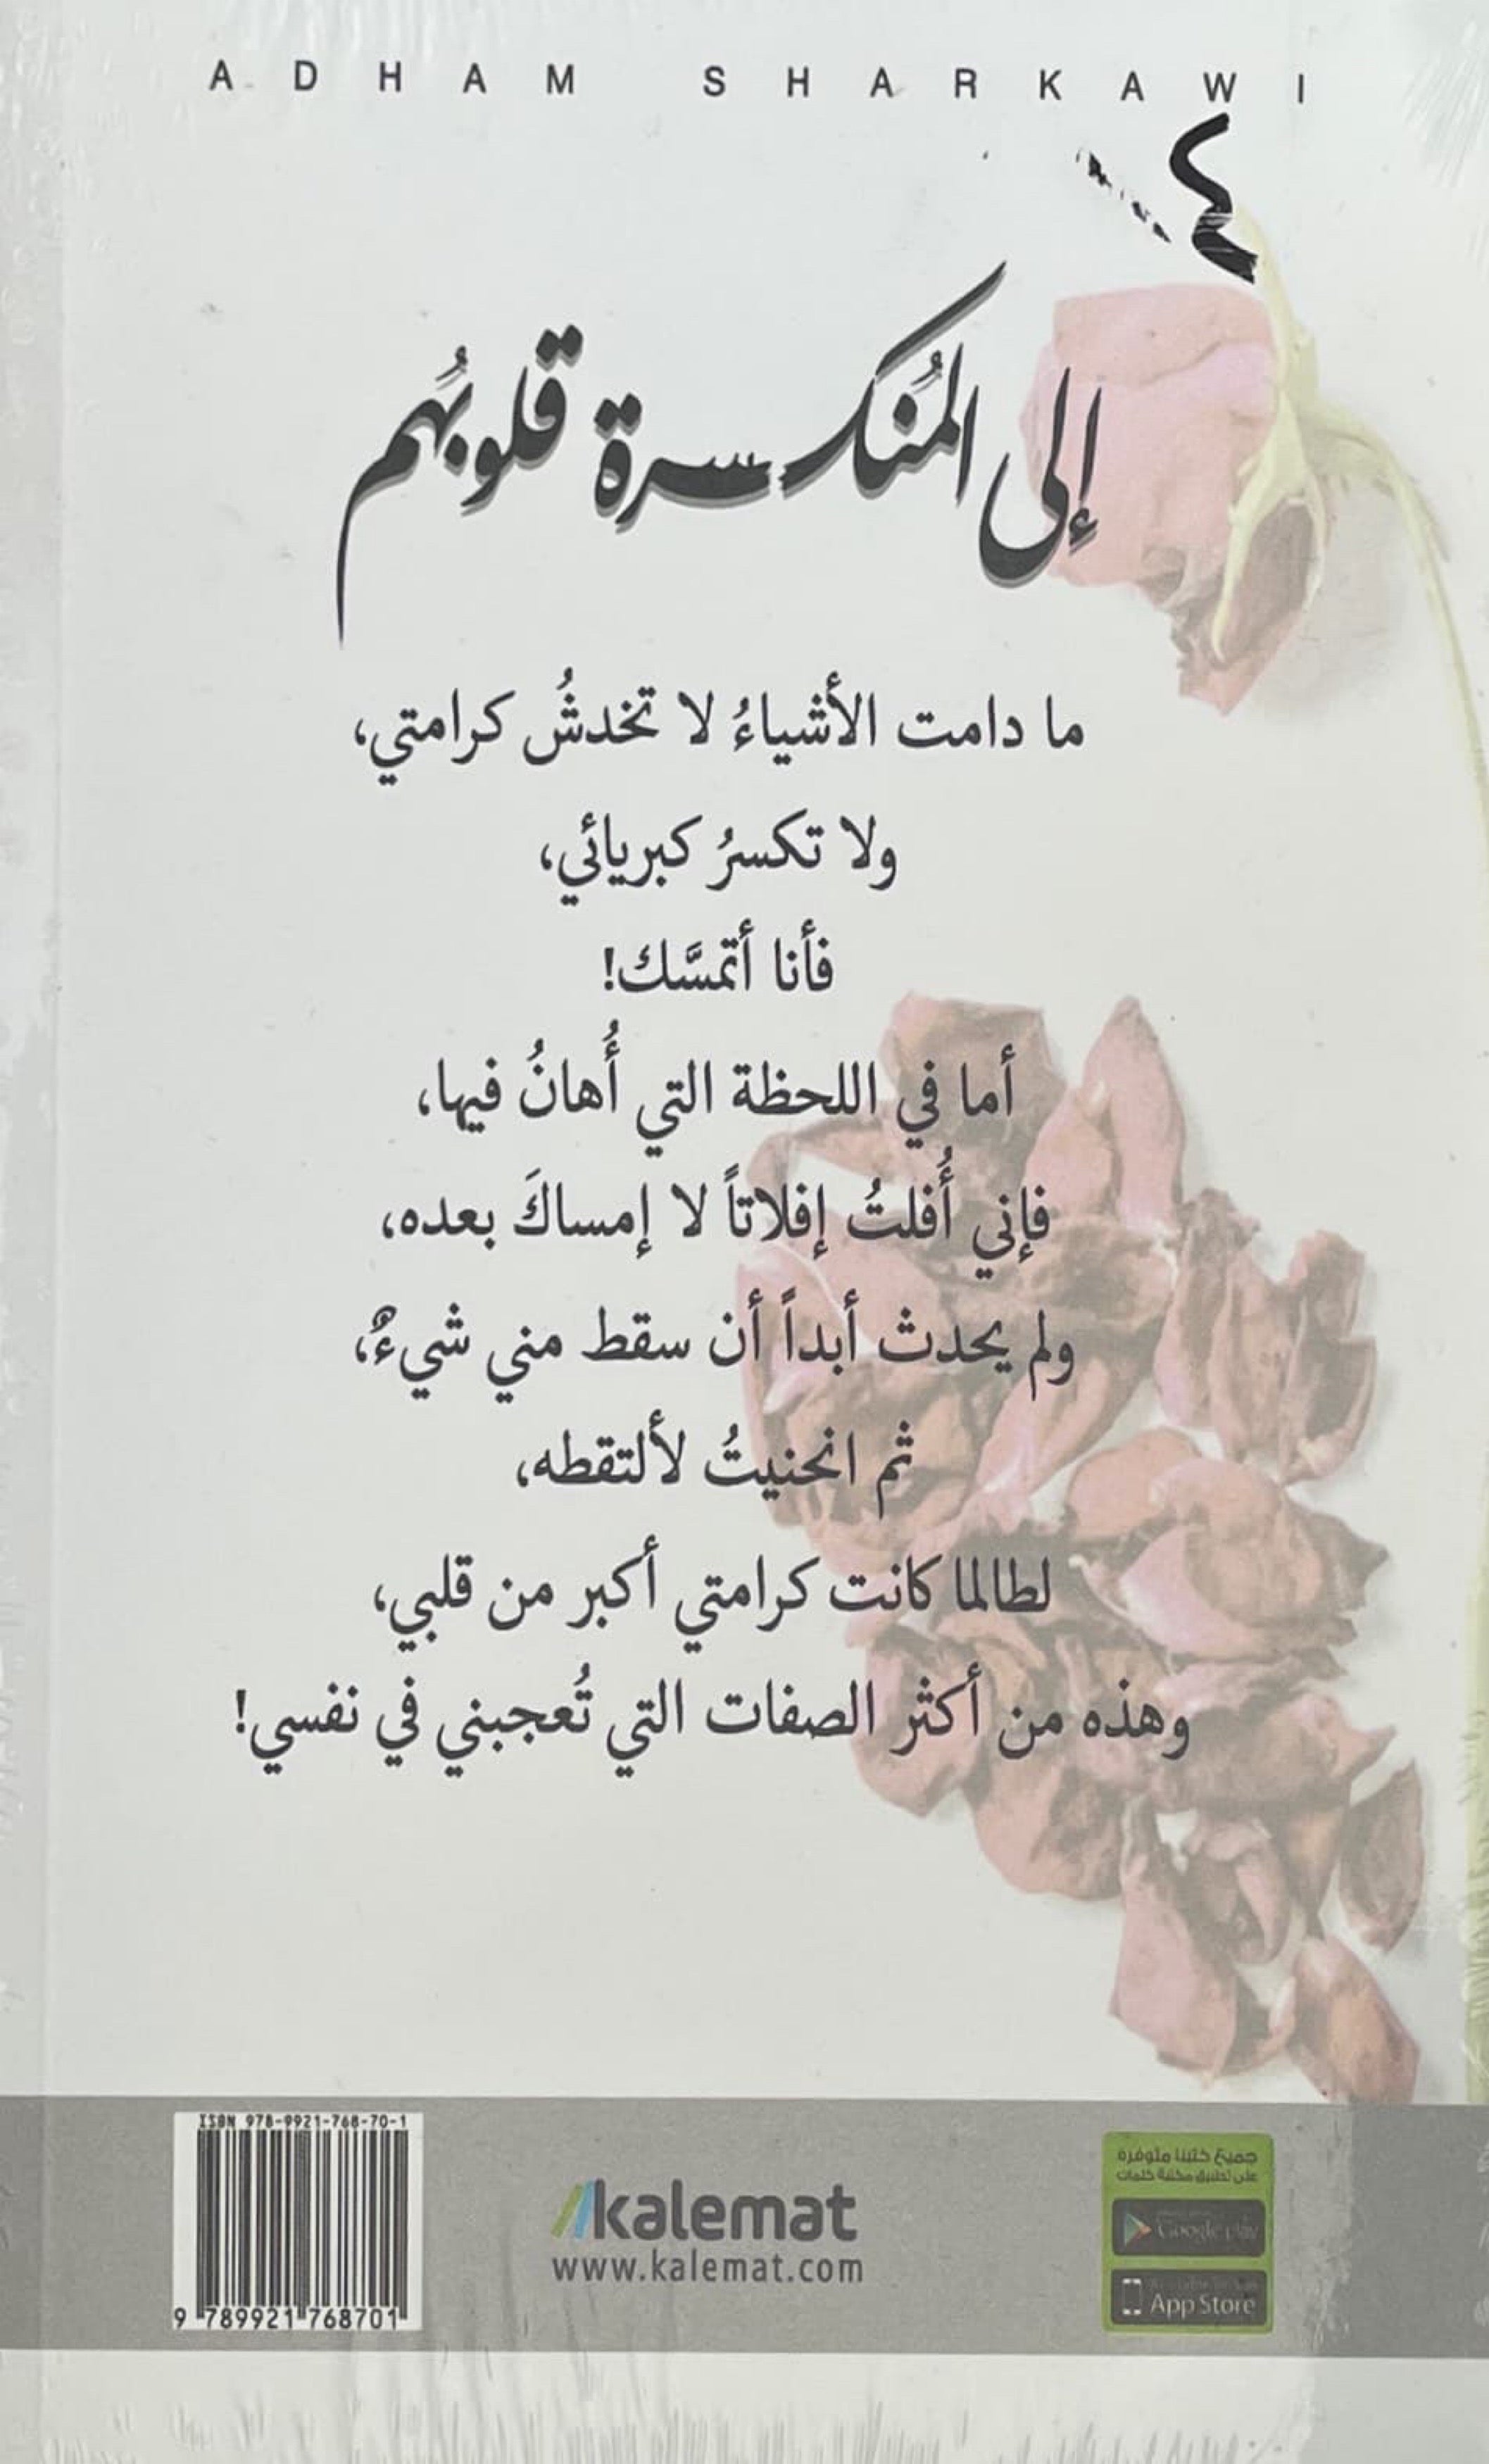 ADHAM SHARKAWI
٤
إلى المُنكسرة قلوبُهم
ما دامت الأشياءُ لا تخدشُ كرامتي،
ولا تكسرُ كبريائي،
فأنا أتمسَّك!
أما في اللحظة التي أُهانُ فيها،
فإني أُفلتُ إفلاتاً لا إمساكَ بعده،
ولم يحدث أبداً أن سقط مني شيءٌ،
ثم انحنيتُ لألتقطه،
لطالما كانت كرامتي أكبر من قلبي،
وهذه من أكثر الصفات التي تُعجبني في نفسي!
ISBN 978-9921-768-70-1
9 789921 768701
kalemat
www.kalemat.com
جميع كتبنا متوفرة
على تطبيق مكتبة كلمات
Google play
App Store